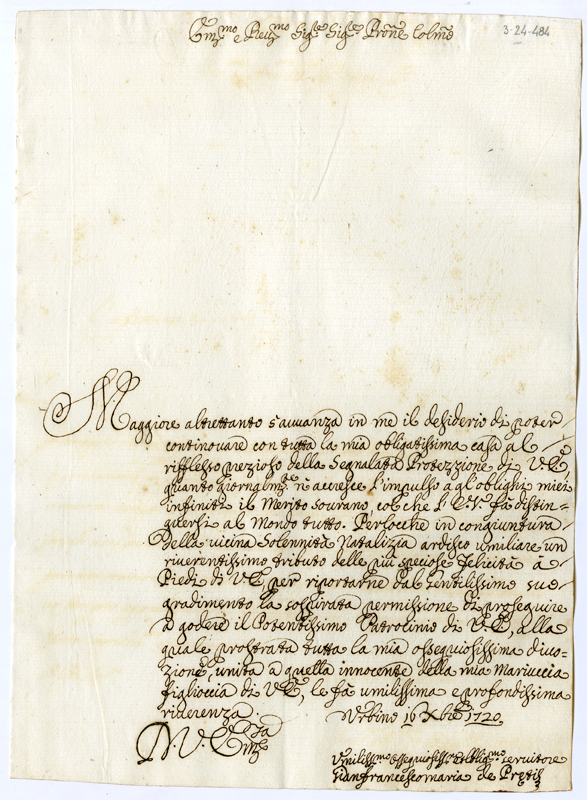 Em:mo e Rev:mo Sig:re Sig:re Prōne Colmō
3-24-484
Maggiore altrettanto s'auuanza in me il desiderio di poter
continouare con tutta la mia obligatissima casa al
riflesso prezioso della Segnalata Protezzione di V:E:
quanto giornalm:te s'accresce l'impulso agl'oblighi miei
infiniti il Merito sourano, col che l'E:V: fà distin-
guersi al Mondo tutto. Perloche in congiuntura
della vicina Solennità Natalizia ardisco umiliare un
riuerentissimo tributo delle più speciose felicità à
Piedi di V:E: per riportarne dal gentilissimo suo
gradimento la sospirata permissione di proseguire
à godere il Potentissimo Patrocinio di V:E:, alla
quale prostrata tutta la mia ossequiosissima diuo-
zione, unita à quella innocente della mia Mariuccia
figlioccia di V:E:, le fà umilissima e profondissima
riuerenza.
Vrbino 16 Xbre 1720.
D. V. Em:za
Vmilissmo ossequiosissmo obblig:mo seruitore
Gianfrancesco maria de Pretis